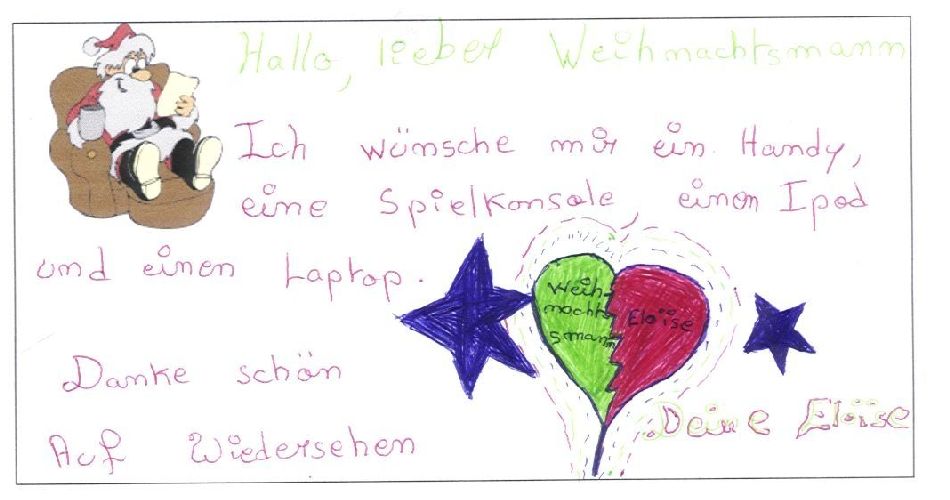 Hallo, lieber Weihnachtsmann
Ich wünsche mir ein Handy,
eine Spielkonsole, einen Ipod
und einen Laptop.
Weih-
nachts
mann
Eloïse
Danke schön
Deine Eloïse
Auf Wiedersehen